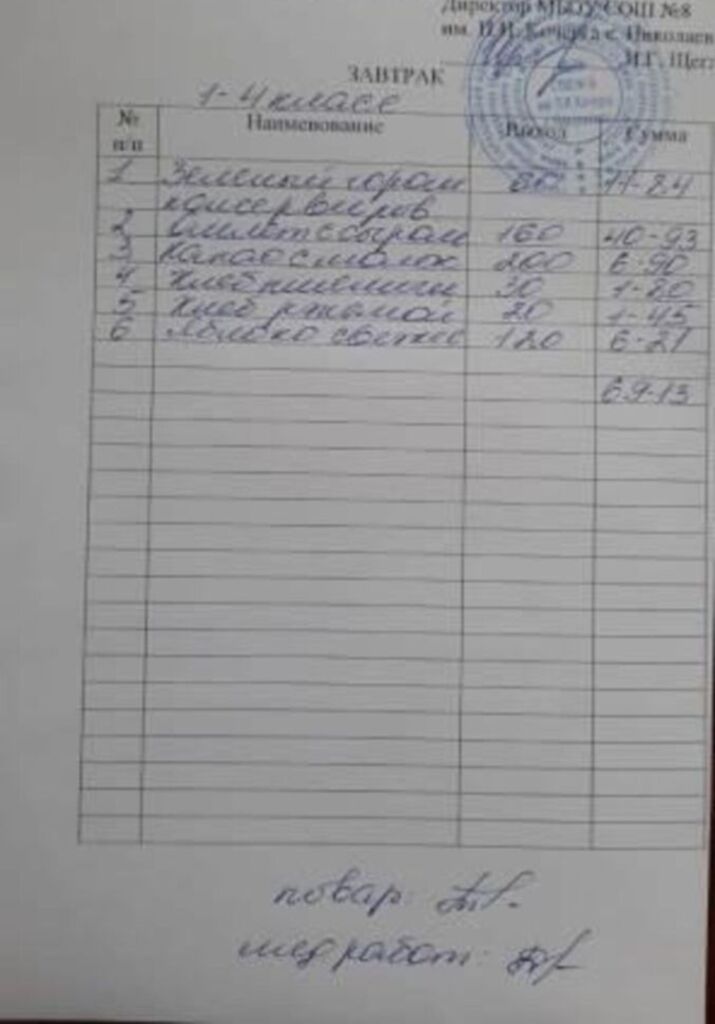 Директор МБОУ СОШ №8
им. с. Николаев
И.Г. Щег
ЗАВТРАК
1-4 классе
№ п/п Наименование Выход Сумма
1 Зеленый горош 60 11-84
консервиров
2 Омлет с сыром 160 40-93
3 Какао с молок 200 6-90
4 Хлеб пшеничн 30 1-80
5 Хлеб ржаной 20 1-45
6 Яблоко свеж 120 6-21
69-13
повар:
мед работ: